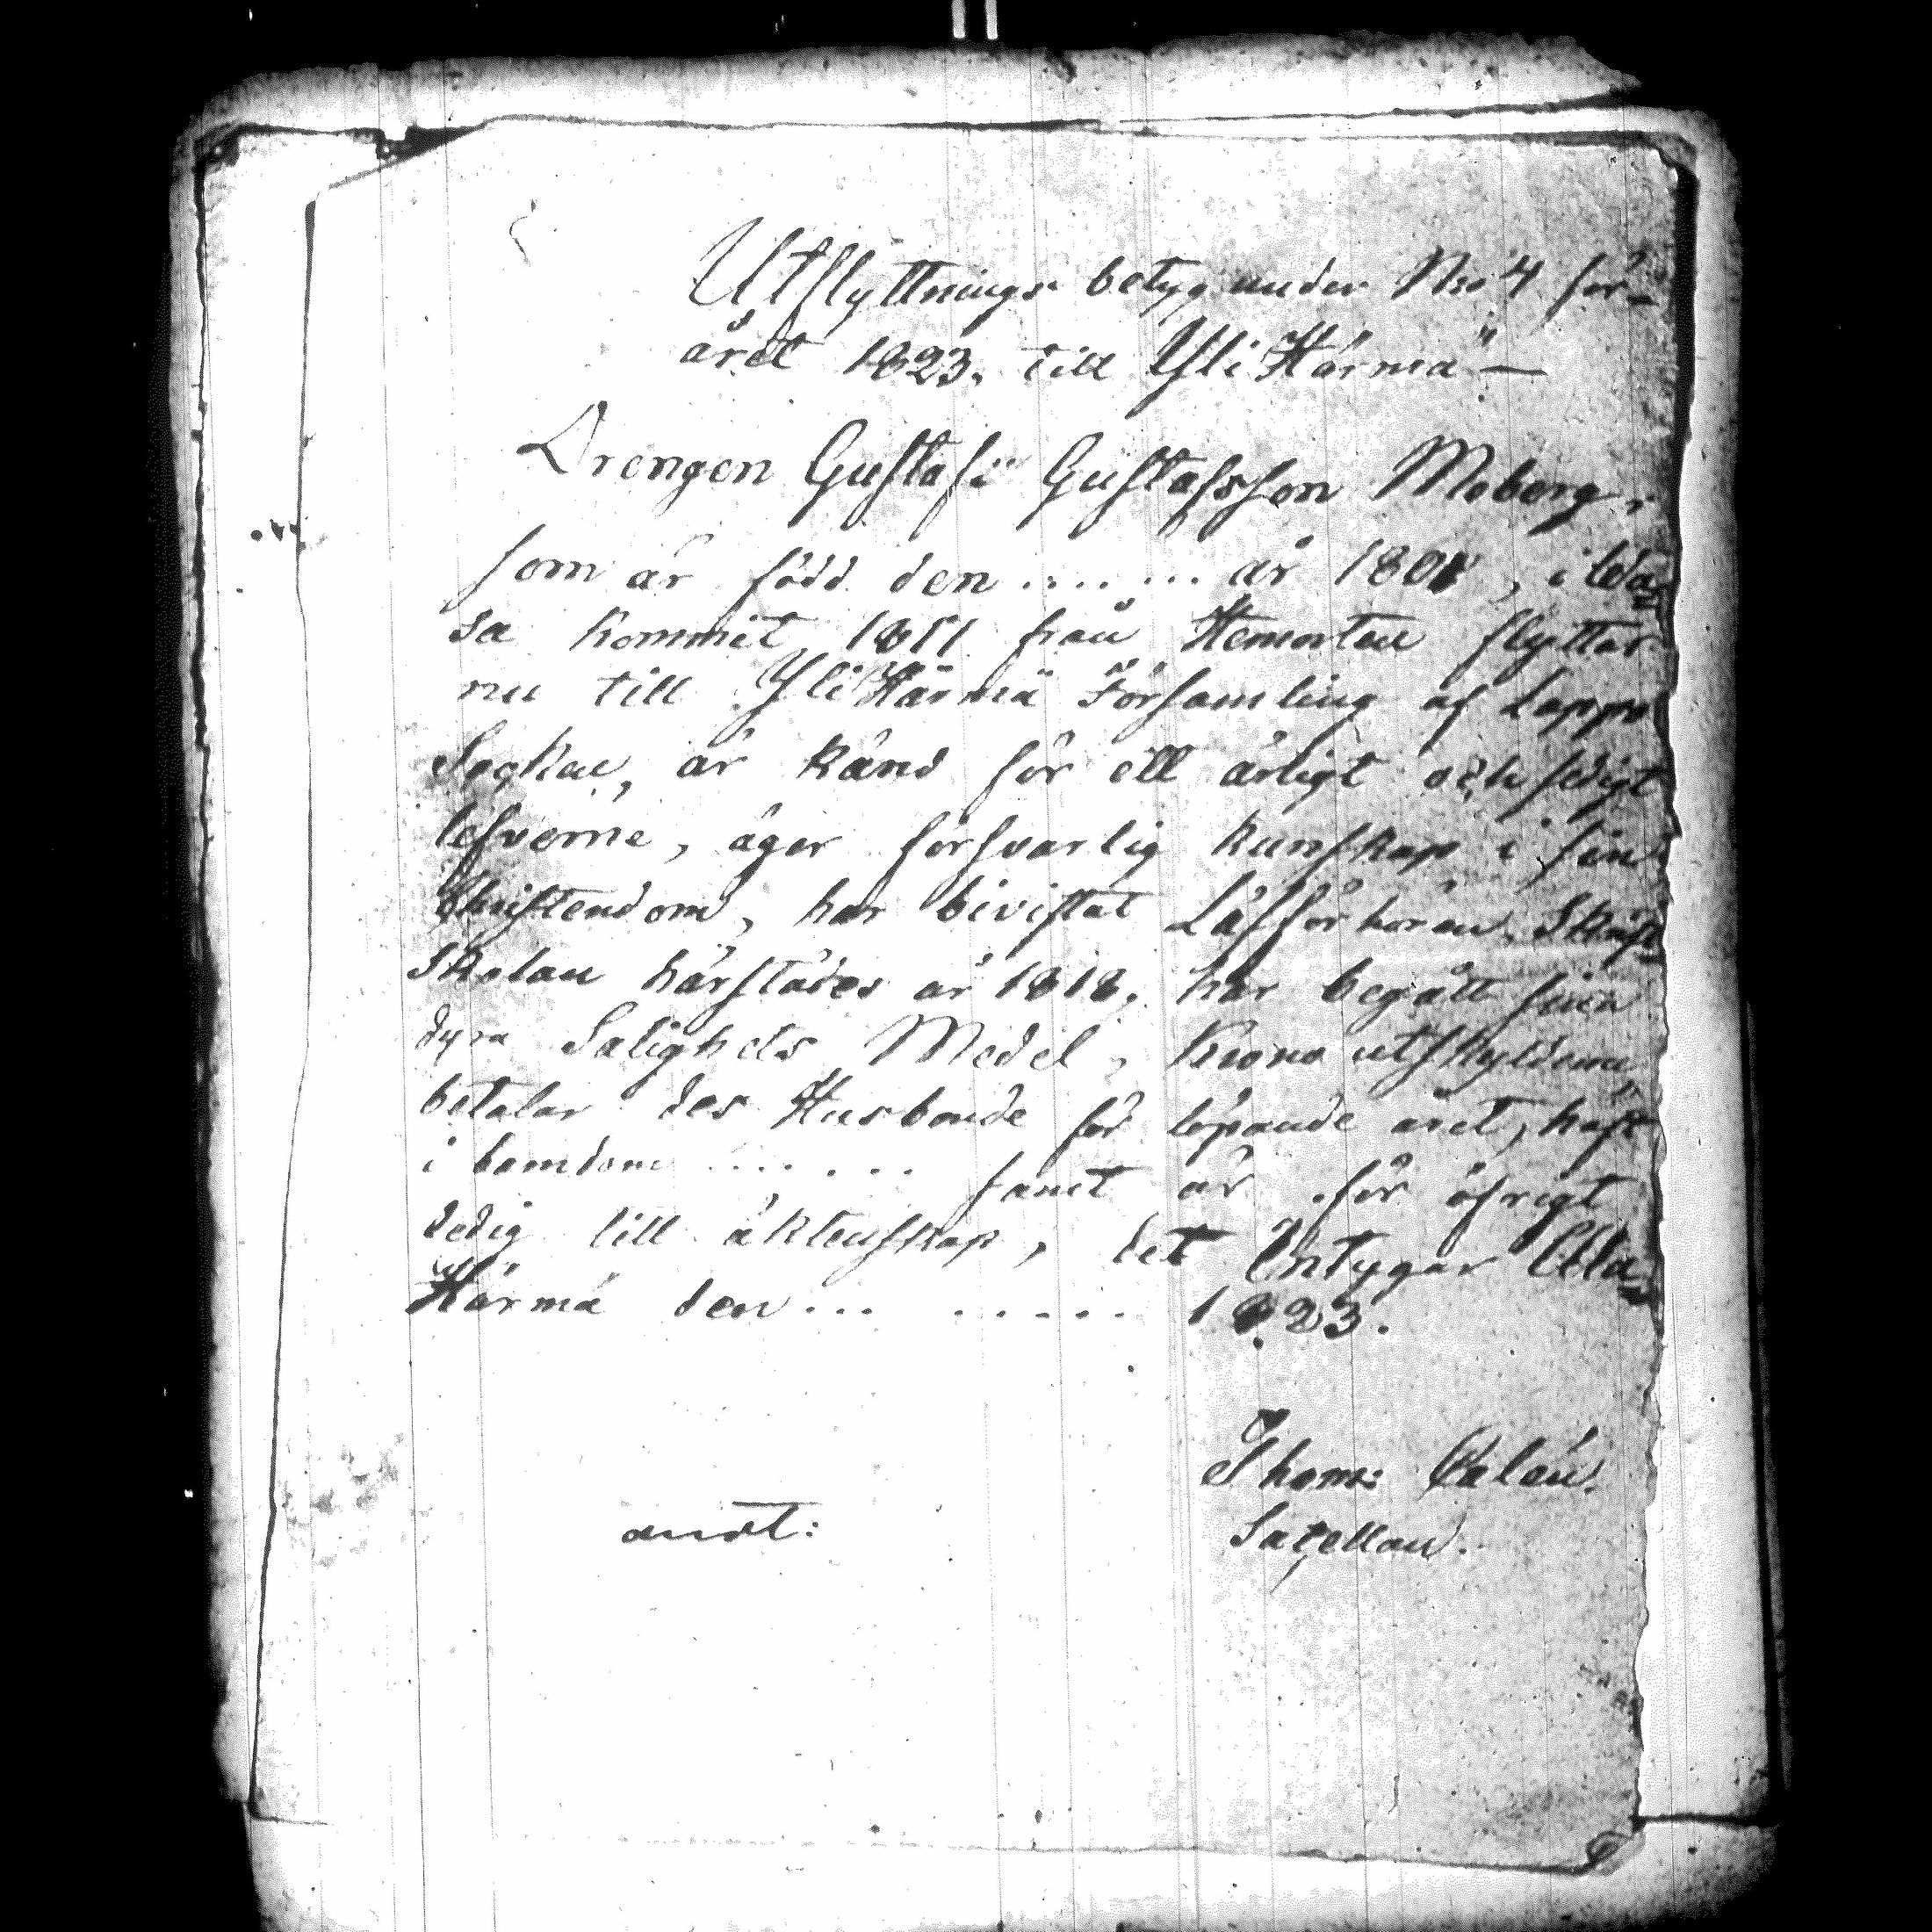 Utflyttnings betyg under No 4 för
året 1823. till Yli Härmä —
Drengen Gustaf Gustafsson Moberg,
som är född den ....... år 1801, i Wa
sa kommit 1811 från Hemorten flyttar
nu till Yli Härmä Församling af Lappo
Sogken, är känd för ett ärligt och sedigt
lefverne, äger försvarlig kunskap i sin
Christendom, har bivistat Läsförhören, Skrift
Skolan härstädes år 1818, har begått sina
dyra Salighets Medel, Krono utskylderna
betalar des Husbonde för löpande året, haft
i barndom ....... samt är för öfrigt
ledig till äktenskap, det Intygar Ala
Härmä den ... ..... 1823.
Thom:
Sacellan.